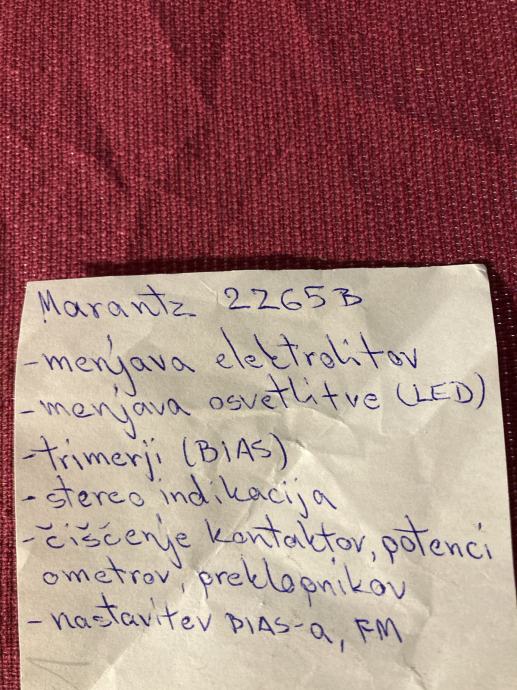 Marantz 2265B
-menjava elektrolitov
-menjava osvetlitve (LED)
-trimerji (BIAS)
-stereo indikacija
-čiščenje kontaktov, potenci
ometrov, preklopnikov
-nastavitev BIAS-a, FM